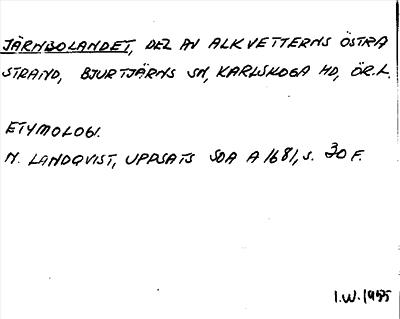 JÄRNBOLANDET, DEL AV ALKVETTERNS ÖSTRA
STRAND, BJURTJÄRNS SN, KARLSKOGA HD, ÖR.L.
ETYMOLOGI.
N. LANDQVIST, UPPSATS SOA A 1681, S. 30 F.
I.W. 1955